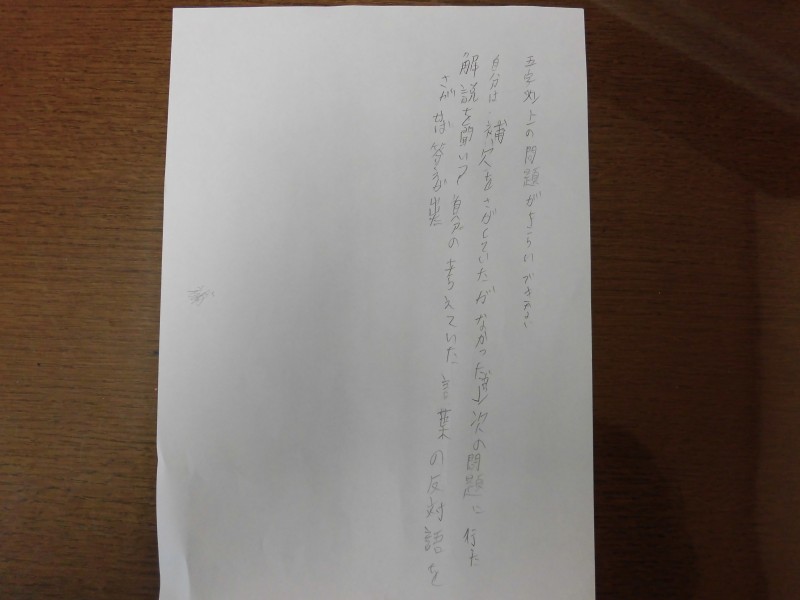 五字以上の問題が〳〵らいできない
自分は補欠をさがしていたがなかった次の問題に行った
解説を聞いて自分の考えていた言葉の反対語を
さがせば答が出た